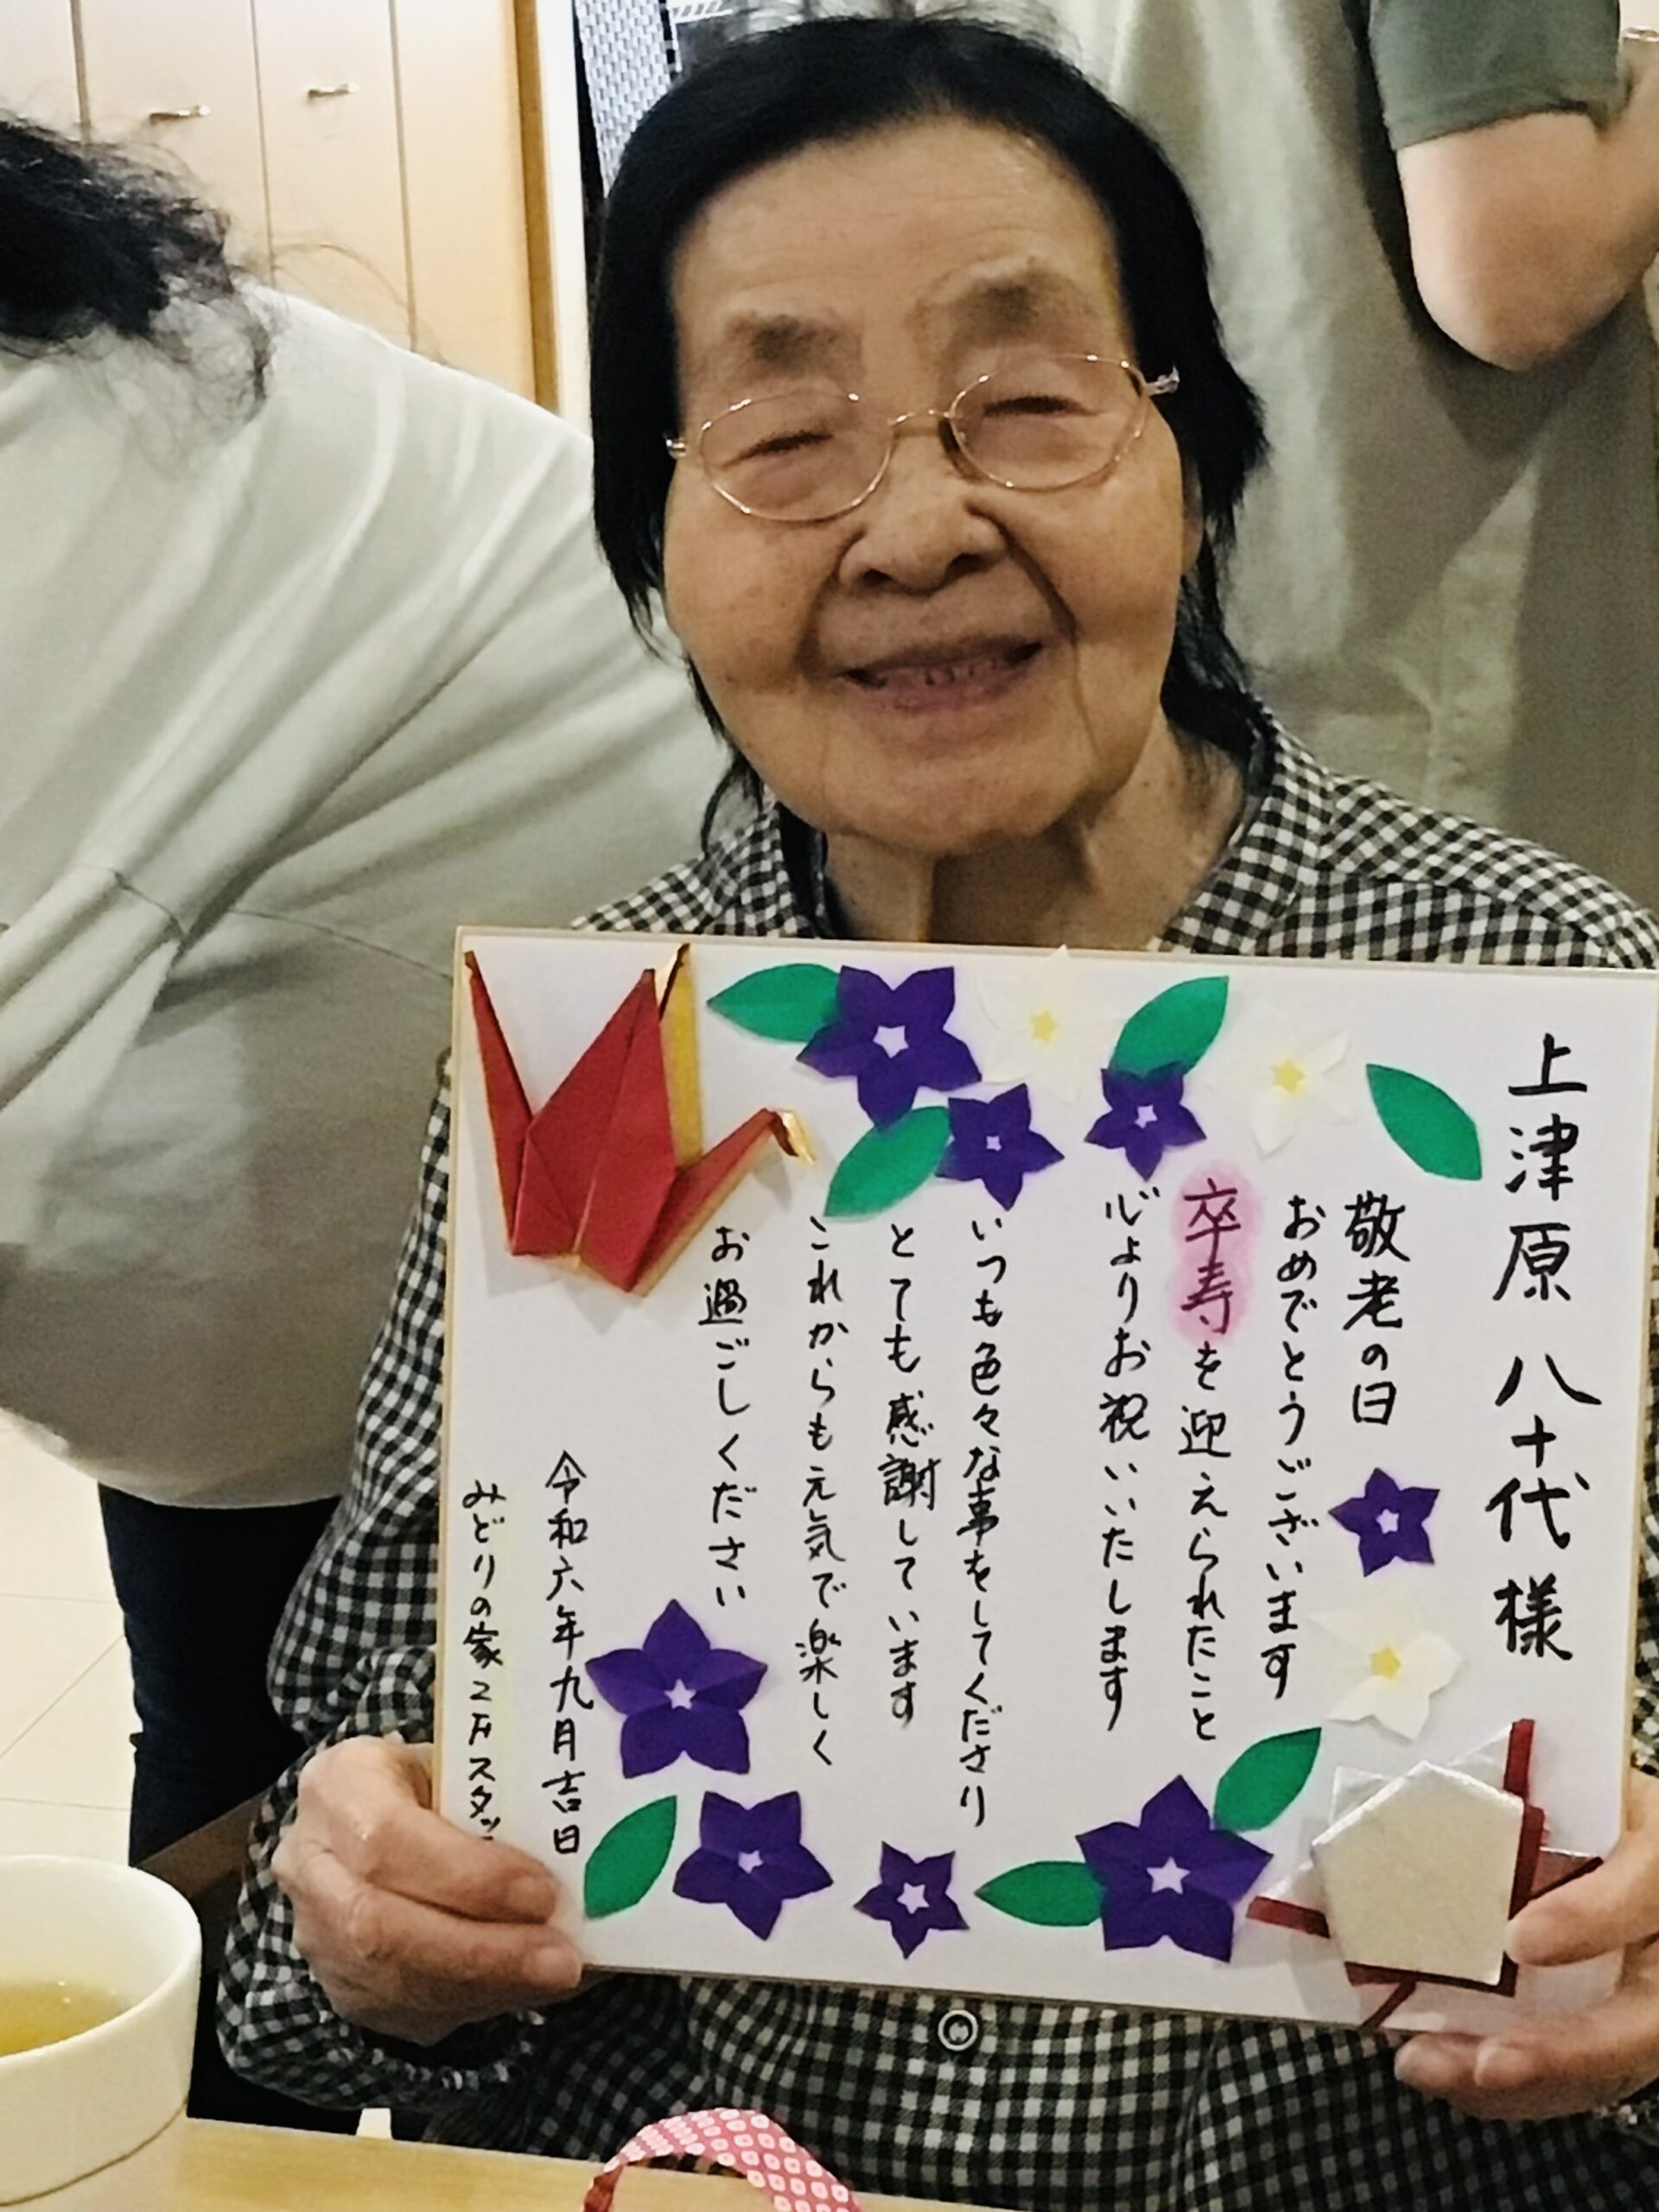 上津原 八十代 様
敬老の日
おめでとうございます
卒寿を迎えられたこと
心よりお祝いいたします
いつも色々な事をしてくださり
とても感謝しています
これからも元気で楽しく
お過ごしください
令和六年九月吉日
みどりの家2Fスタッ